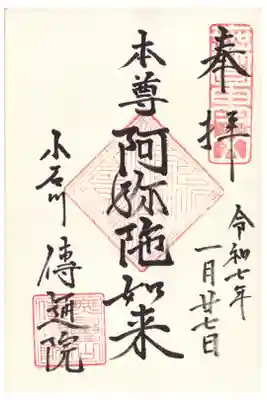 奉拝
令和七年
一月廿七日
本尊
阿弥陀如来
小石川
傳通院